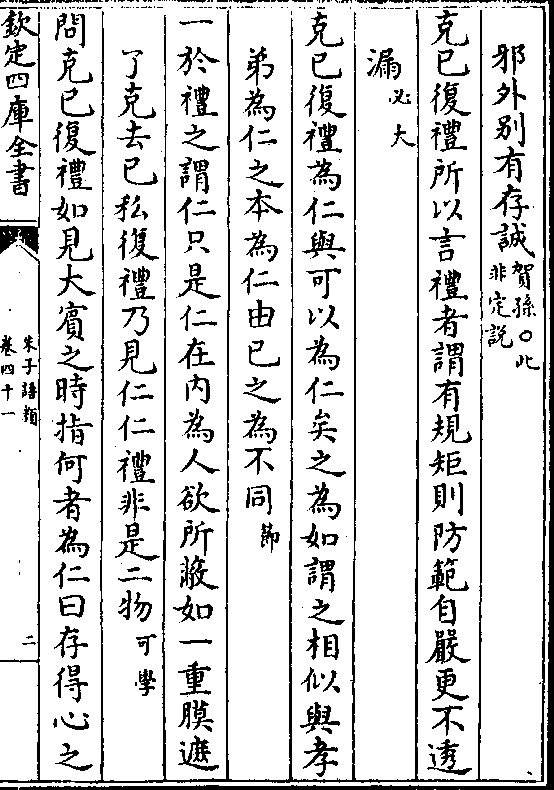 邪外别有存誠賀孫○此非定説
克已復禮所以言禮者謂有規矩則防範自嚴更不透
漏必大
克已復禮為仁與可以為仁矣之為如謂之相似與孝
弟為仁之本為仁由已之為不同節
一於禮之謂仁只是仁在内為人欲所蔽如一重膜遮
了克去已私復禮乃見仁仁禮非是二物可學
問克已復禮如見大賓之時指何者為仁曰存得心之
欽定四庫全書
朱子語類
卷四十一
二